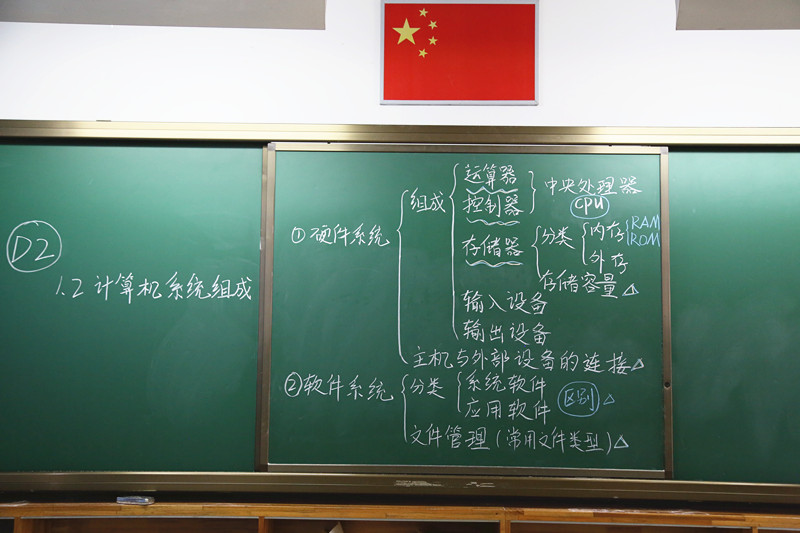 D2
1.2 计算机系统组成
①硬件系统
组成
运算器
控制器
中央处理器
CPU
存储器
分类
内存
RAM
ROM
外存
存储容量△
输入设备
输出设备
主机与外部设备的连接△
②软件系统
分类
系统软件
应用软件
区别△
文件管理(常用文件类型)△